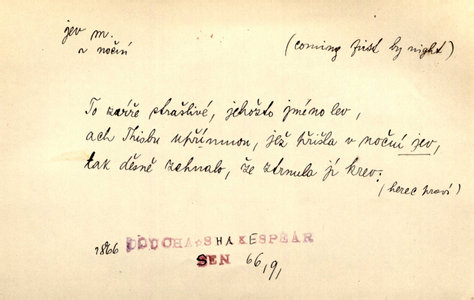 jev m.
v noční
(coming first by night)
To zvíře strašlivé, jehožto jméno lev,
ach Thisbu upřímnou, jež přišla v noční jev,
tak děsně zahnalo, že ztrnula jí krev.
(herec praví)
1866 DOUCHA-SHAKESPEAR
SEN 66,91